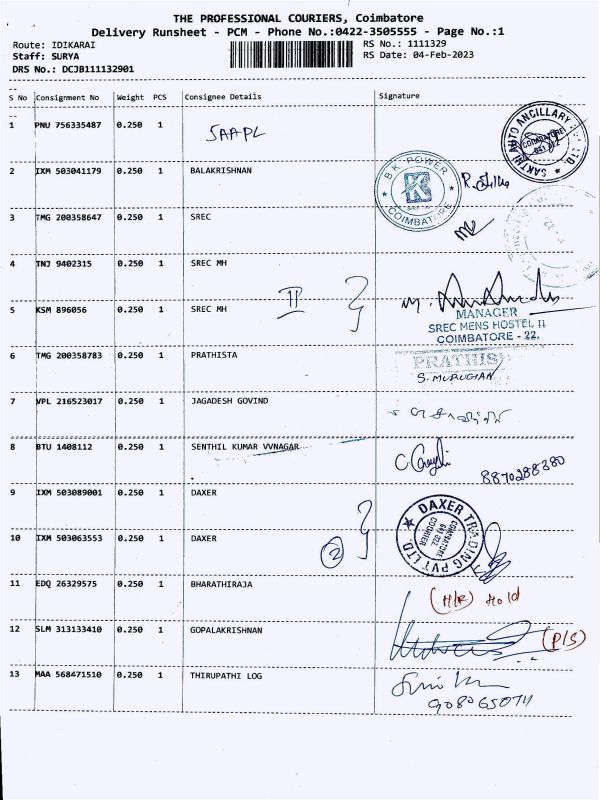 THE PROFESSIONAL COURIERS, Coimbatore
Delivery Runsheet - PCM - Phone No.:0422-3505555 - Page No.:1
Route: IDIKARAI RS No.: 1111329
Staff: SURYA RS Date: 04-Feb-2023
DRS No.: DCJB111132901
S No Consignment No Weight PCS Consignee Details Signature
1 PNU 756335487 0.250 1 SAAPL
SAKTHI AUTO ANCILLARY
2 IXM 503041179 0.250 1 BALAKRISHNAN
B K POWER COIMBATORE
3 TMG 200358647 0.250 1 SREC
4 TNJ 9402315 0.250 1 SREC MH
5 KSM 896056 0.250 1 SREC MH II
MANAGER
SREC MENS HOSTEL II
COIMBATORE - 22.
6 TMG 200358783 0.250 1 PRATHISTA
PRATHIS
S. MURUGIAN
7 VPL 216523017 0.250 1 JAGADESH GOVIND
8 BTU 1408112 0.250 1 SENTHIL KUMAR VVNAGAR
8870288380
9 IXM 503089001 0.250 1 DAXER
DAXER TRADING PVT LTD
COIMBATORE
641 022
COURIER
10 IXM 503063553 0.250 1 DAXER 2
11 EDQ 26329575 0.250 1 BHARATHIRAJA
(H/R) Hold
12 SLM 313133410 0.250 1 GOPALAKRISHNAN
(P/S)
13 MAA 568471510 0.250 1 THIRUPATHI LOG